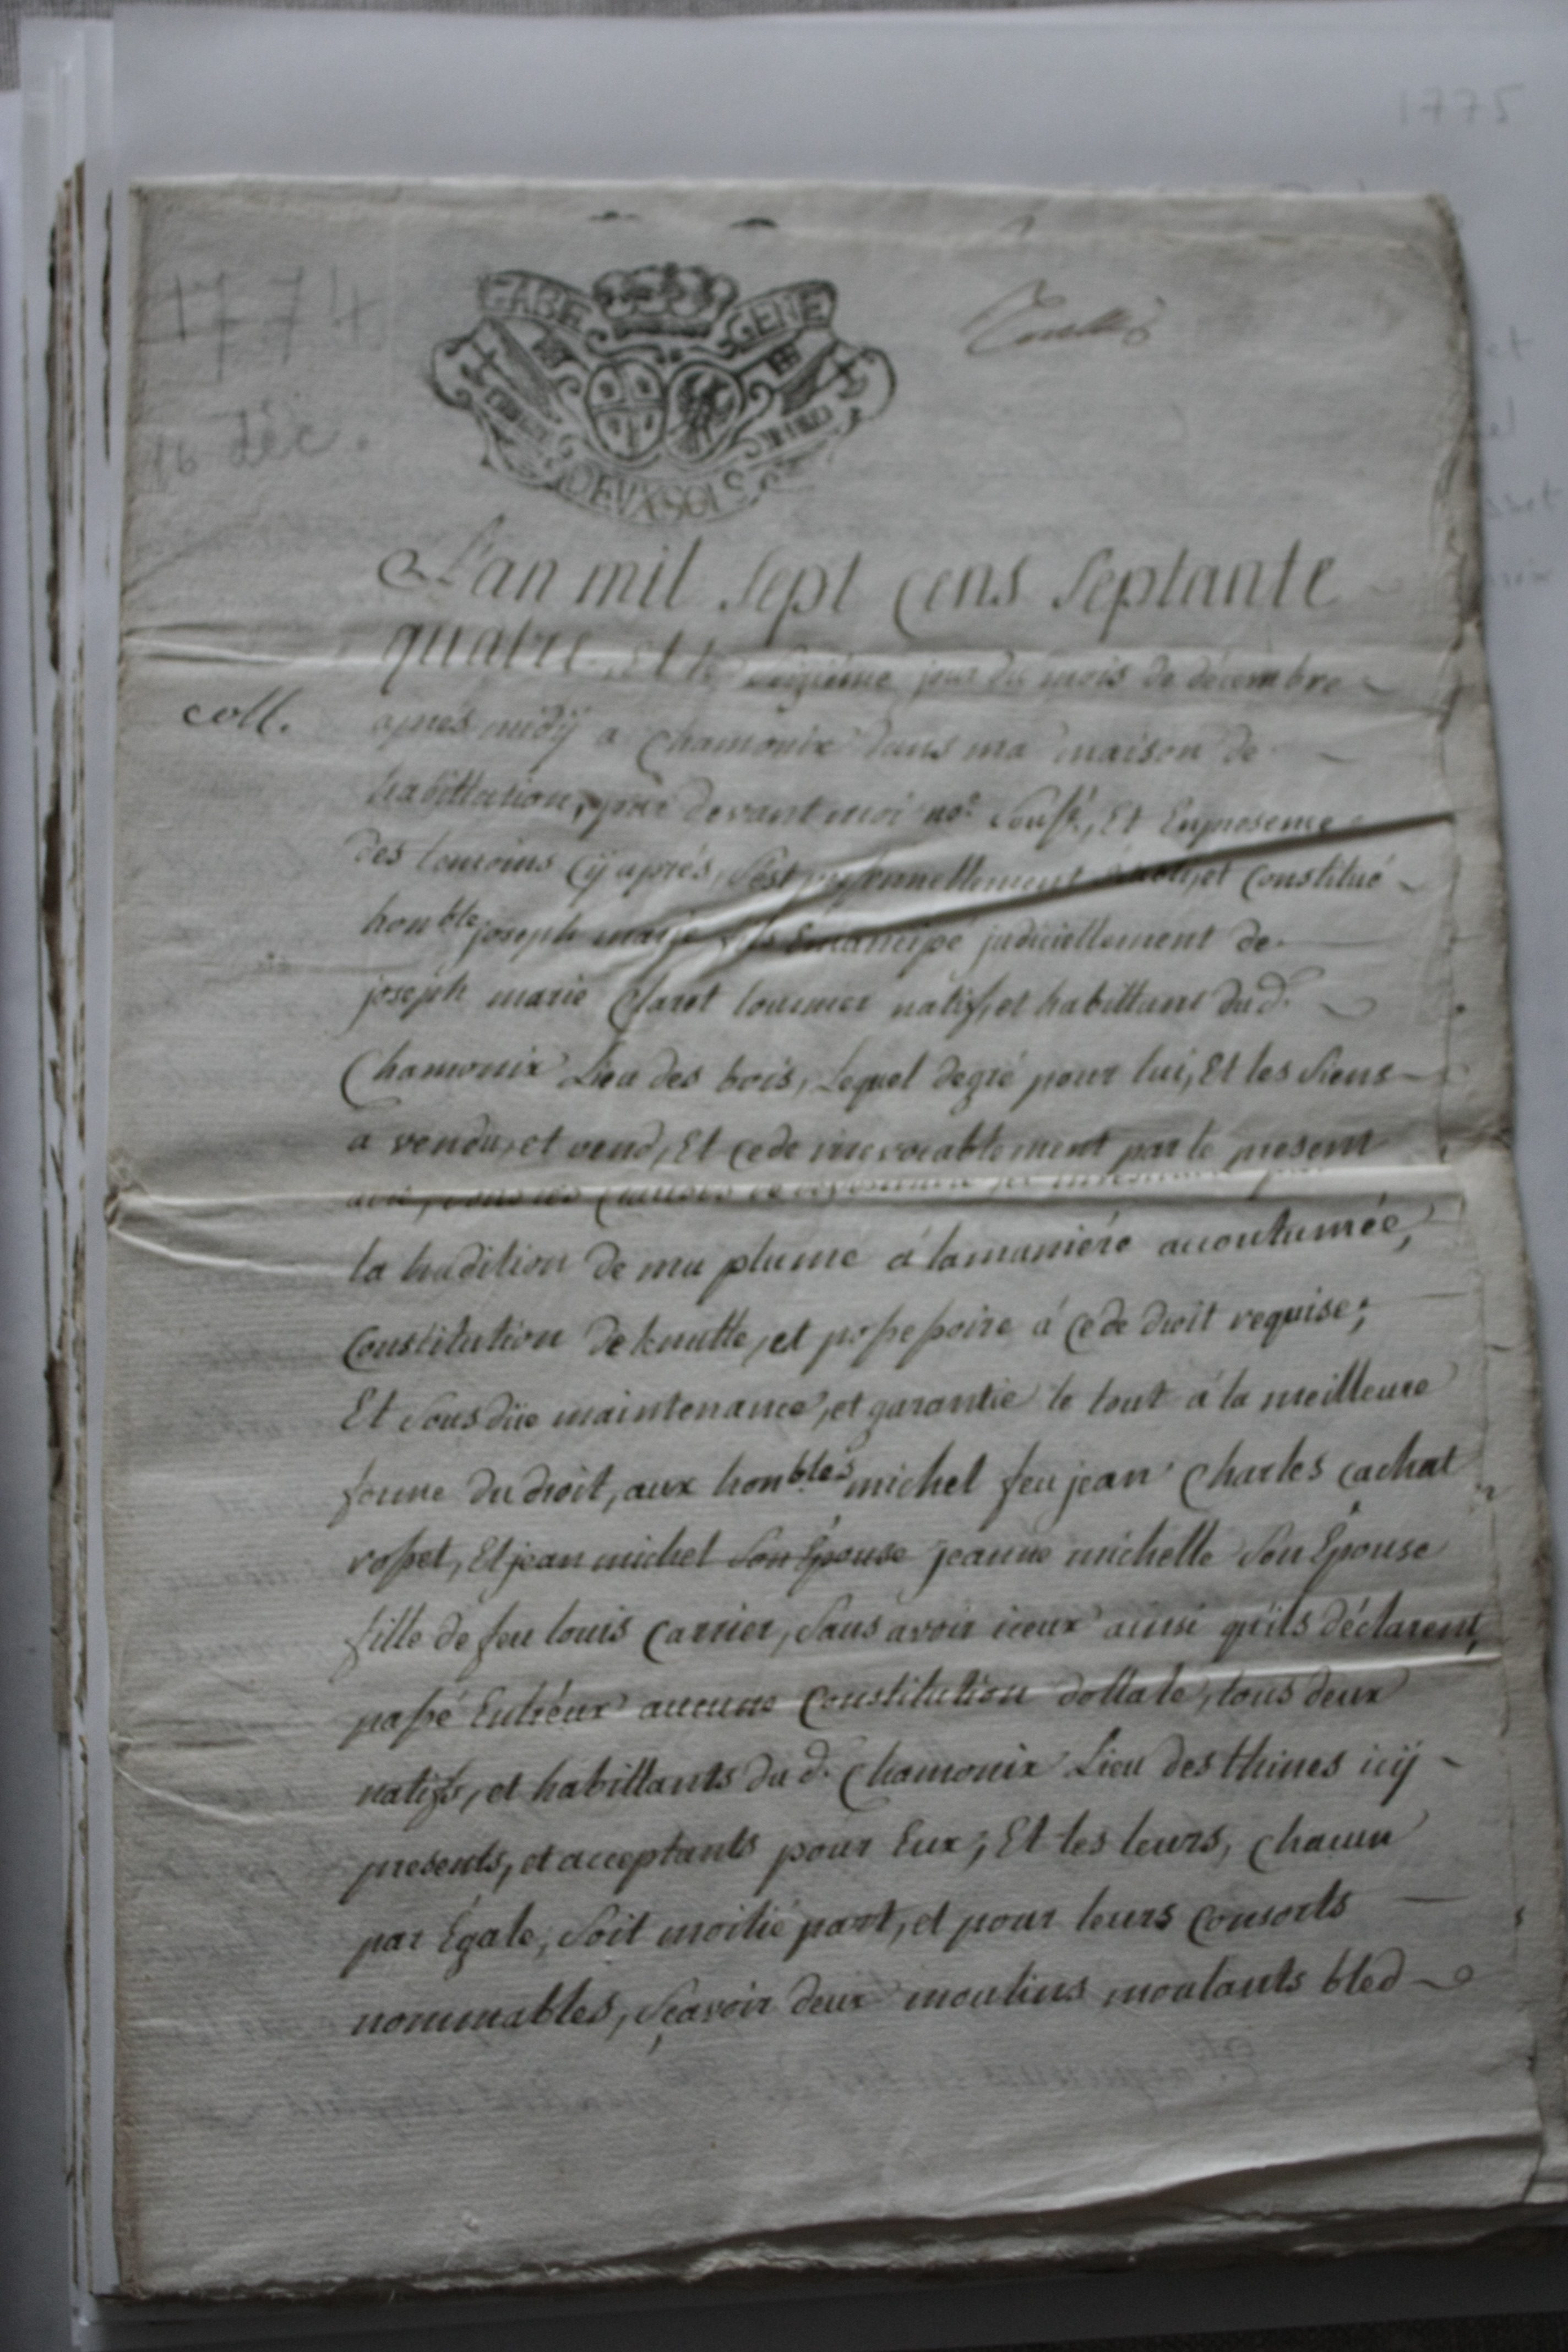 1774
16 déc.
GABE GENE
DEUX SOLS
L'an mil sept cens septante
quatre et le seizième jour du mois de décembre
après midÿ a Chamonix dans ma maison de
habittation, par devant moi nore. soussé., Et En presence
des temoins cÿ après, s'est personnellement Etabli, et Constitué
honble joseph marie fils Emancipé judiciellement de
joseph marie Claret tournier natif, et habittant du d.
Chamonix Lieu des bois, Lequel de gré pour lui, Et les siens
a vendu, et vend, Et cede irrevocablement par le present
acte, sous les clauses de
la tradition de ma plume à la maniére accoutumée,
Constitution de knutte, et possessoire à ce de droit requise;
Et sous düe maintenance, et garantie le tout à la meilleure
forme du droit, aux honbles michel feu jean Charles cachat
rosset, Et jean michel son Epouse jeanne michelle son Epouse
fille de feu louis Carrier, sans avoir iceux ainsi qu'ils déclarent,
passé Entr'eux aucune Constitution dottale, tous deux
natifs, et habittants du d. Chamonix Lieu des thines icÿ
presents, et acceptants pour Eux, Et les leurs, chacun
par Egale, soit moitié part, et pour leurs Consorts
nommables, sçavoir deux moulins moulants bled
coll.
1775